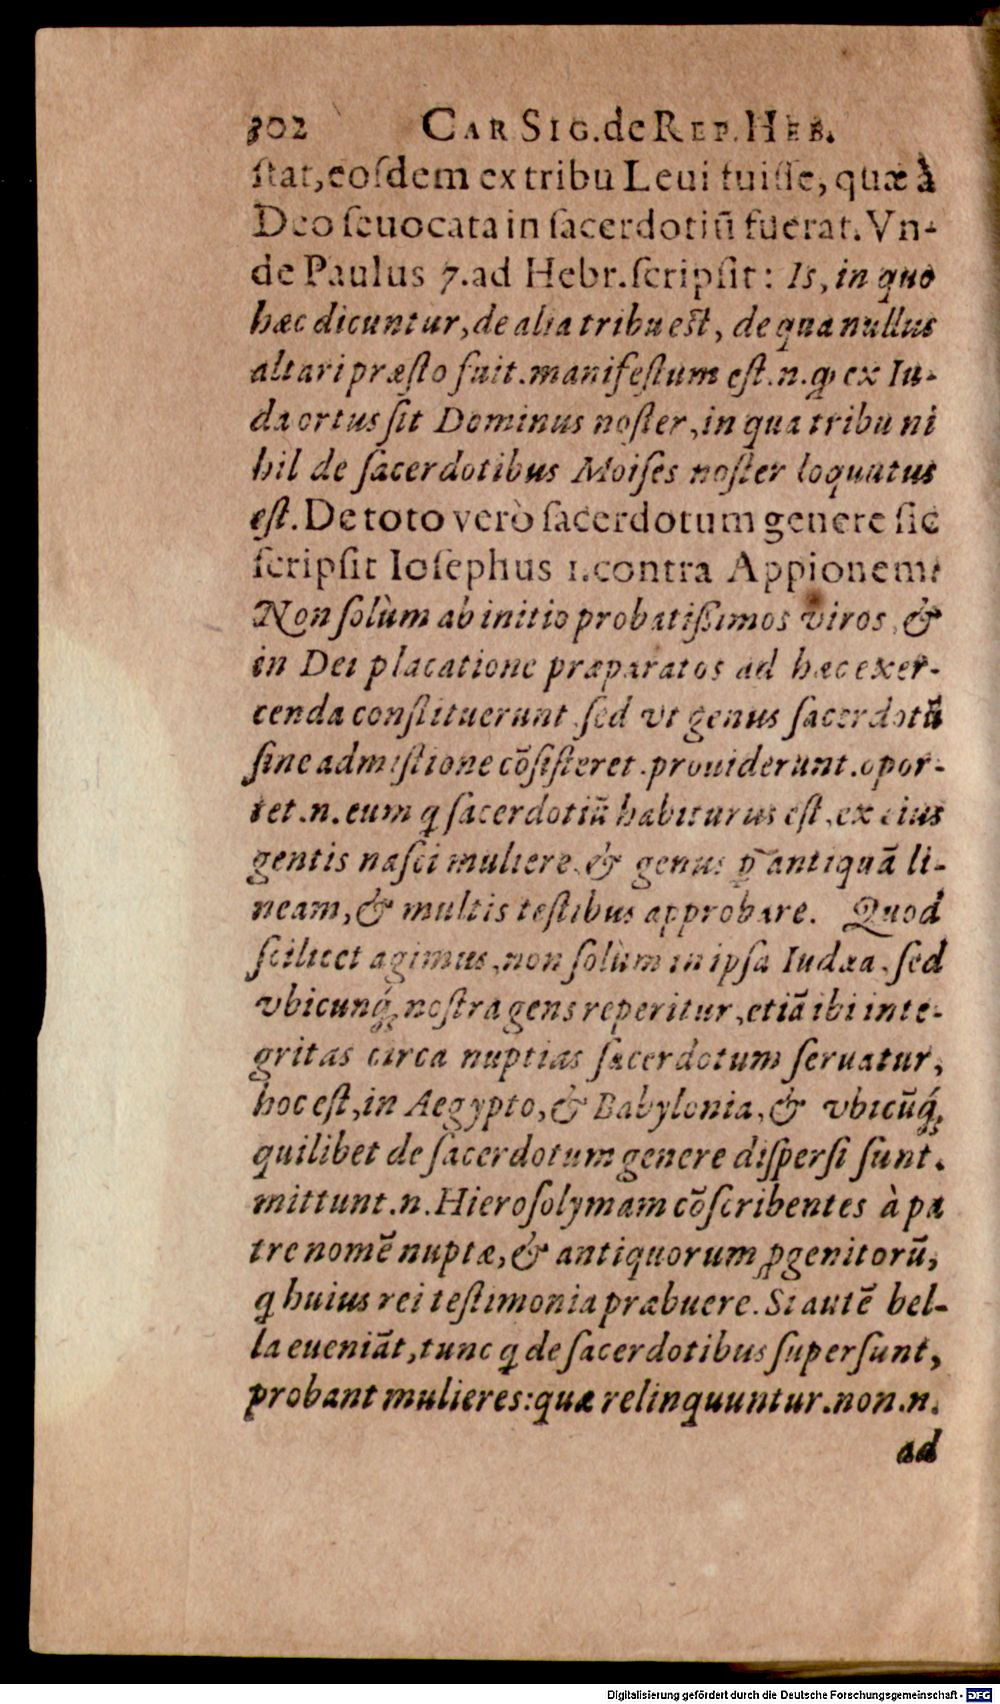 302 CAR SIG. de REP. HEB.
ſtat, eoſdem ex tribu Leui fuiſſe, quæ à
Deo ſeuocata in ſacerdotiũ fuerat. Vn-
de Paulus 7. ad Hebr. ſcripſit: Is, in quo
hæc dicuntur, de alia tribu eſt, de qua nullus
altari præſto fuit. manifeſtum eſt. n. ꝙ ex Iu-
da ortus ſit Dominus noſter, in qua tribu ni
hil de ſacerdotibus Moiſes noſter loquutus
eſt. De toto verò ſacerdotum genere ſic
ſcripſit Ioſephus 1. contra Appionem:
Non ſolùm ab initio probatißimos viros, &
in Dei placatione præparatos ad hæc exer-
cenda conſtituerunt, ſed vt genus ſacerdotũ
ſine admiſtione cõſiſteret. prouiderunt. opor-
tet. n. eum q̃ ſacerdotiũ habiturus eſt, ex eius
gentis naſci muliere, & genus ꝑ antiquã li-
neam, & multis teſtibus approbare. Quod
ſcilicet agimus, non ſolùm in ipſa Iudæa, ſed
vbicunq́; noſtra gens reperitur, etiã ibi inte-
gritas circa nuptias ſacerdotum ſeruatur,
hoc eſt, in Aegypto, & Babylonia, & vbicũq́;
quilibet de ſacerdotum genere diſperſi ſunt.
mittunt. n. Hieroſolymam cõſcribentes à pa
tre nomẽ nuptæ, & antiquorum ꝓgenitorũ,
q̃ huius rei teſtimonia præbuere. Si autẽ bel-
la eueniãt, tunc q̃ de ſacerdotibus ſuperſunt,
probant mulieres: quæ relinquuntur. non. n.
ad
Digitalisierung gefördert durch die Deutsche Forschungsgemeinschaft - DFG